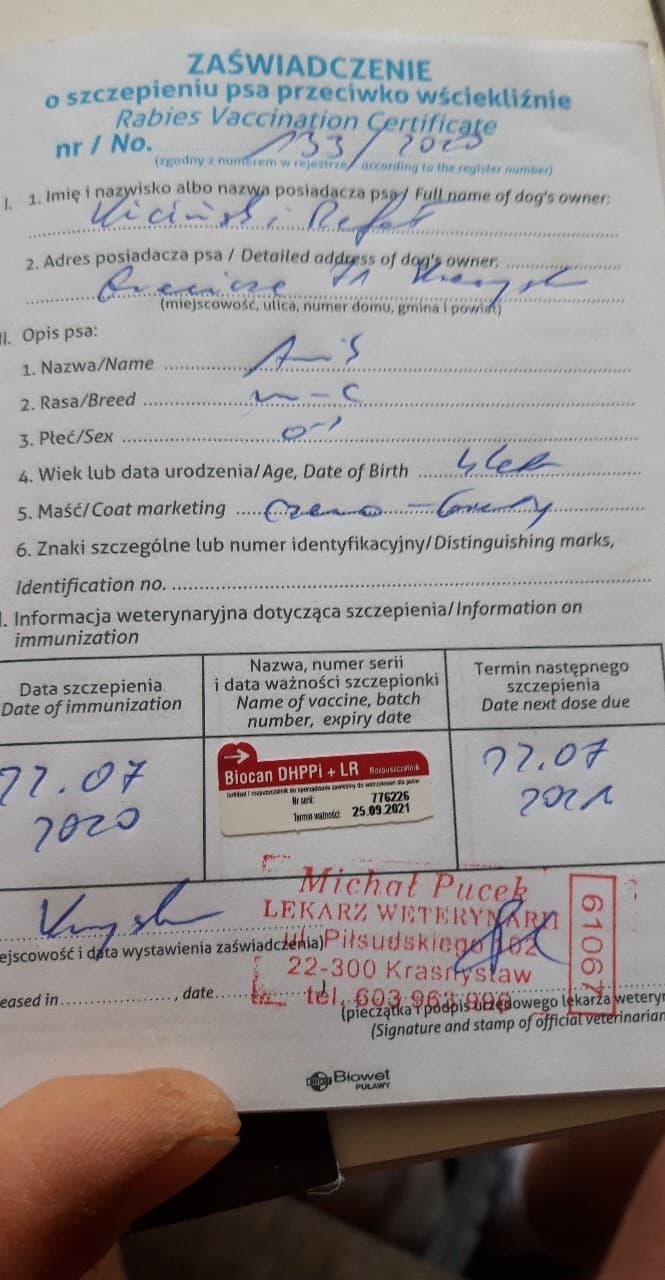 ZAŚWIADCZENIE
o szczepieniu psa przeciwko wściekliźnie
Rabies Vaccination Certificate
nr / No. 133 / 2020
(zgodny z numerem w rejestrze/ according to the register number)
I. 1. Imię i nazwisko albo nazwa posiadacza psa / Full name of dog's owner:
Kiciński Rafał
2. Adres posiadacza psa / Detailed address of dog's owner.
71
(miejscowość, ulica, numer domu, gmina i powiat)
II. Opis psa:
1. Nazwa/Name
2. Rasa/Breed m-c
3. Płeć/Sex
4. Wiek lub data urodzenia/Age, Date of Birth 4
5. Maść/Coat marketing
6. Znaki szczególne lub numer identyfikacyjny/Distinguishing marks,
Identification no.
I. Informacja weterynaryjna dotycząca szczepienia/Information on
immunization
Data szczepienia
Date of immunization
Nazwa, numer serii
i data ważności szczepionki
Name of vaccine, batch
number, expiry date
Termin następnego
szczepienia
Date next dose due
22.07
2020
Biocan DHPPi + LR Rozpuszczalnik
Nr serii: 776226
Termin ważności: 25.09.2021
22.07
2021
Michał Pucek
LEKARZ WETERYNARII
Ul. Piłsudskiego 102
22-300 Krasnystaw
61067
ejscowość i data wystawienia zaświadczenia)
eased in, date
(pieczątka i podpis urzędowego lekarza wetery
(Signature and stamp of official veterinarian
Biowet
PUŁAWY